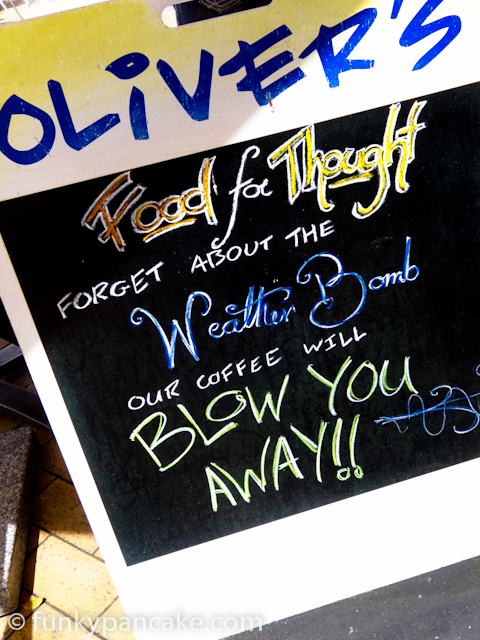 OLiVER'S
Food for Thought
FORGET ABOUT THE
Weather Bomb
OUR COFFEE WILL
BLOW YOU
AWAY!!
© funkypancake.com